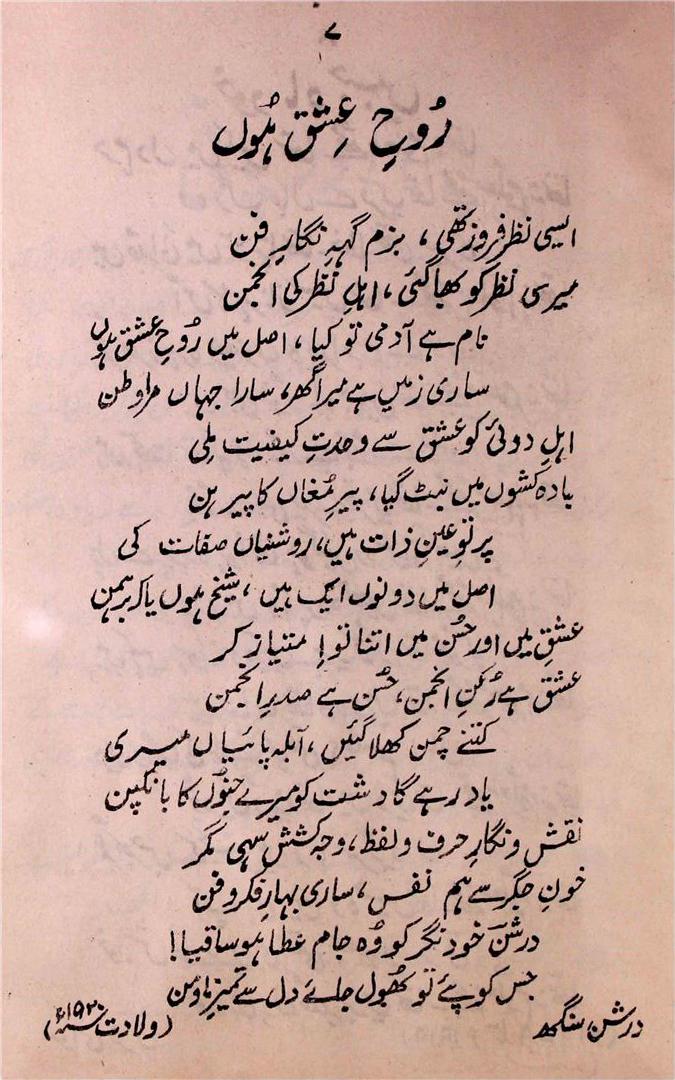 ۷
رُوحِ عِشق ہُوں
ایسی نظر فروز تھی، بزم گہہِ نگارِ فن
میری نظر کو بھا گئی، اہلِ نظر کی انجمن
نام ہے آدمی تو کیا، اصل میں رُوحِ عشق ہُوں
ساری زمیں ہے میرا گھر، سارا جہاں مرا وطن
اہلِ دوئی کو عشق سے وحدتِ کیفیت ملی
بادہ کشوں میں بٹ گیا، پیرِ مُغاں کا پیرہن
پرتوِ عینِ ذات ہیں، روشنیاں صفات کی
اصل میں دونوں ایک ہیں، شیخ ہوں یا کہ برہمن
عشق میں اور حُسن میں اتنا تو اِمتیاز کر
عشق ہے رُکنِ انجمن، حُسن ہے صدرِ انجمن
کتنے چمن کھلا گئیں، آبلہ پائیاں میری
یاد رہے گا دشت کو میرے جنوں کا بانکپن
نقش و نگارِ حرف و لفظ، وجہ کشش سہی مگر
خونِ جگر سے ہم نفس، ساری بہارِ فکر و فن
درشنؔ خود نگر کو وُہ جام عطا ہو ساقیا!
جس کو پئے تو بھُول جائے دل سے تمیزِ ما و من
درشن سنگھ
(ولادت